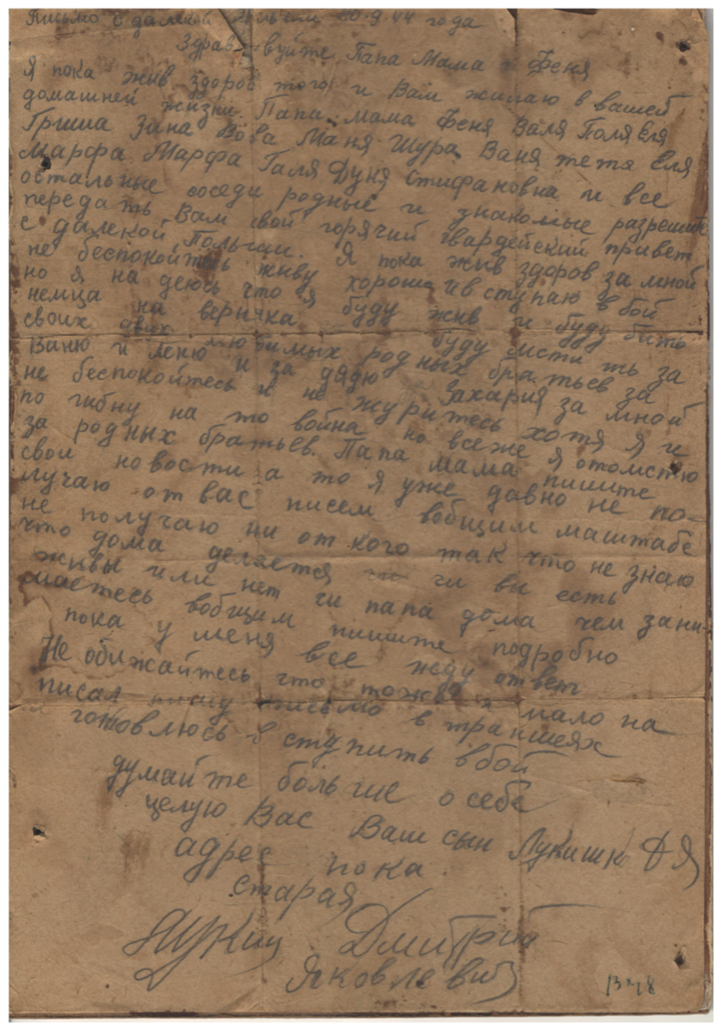 Письмо с далекой Польши 20.9.44 года
Здравствуйте Папа Мама и Феня
Я пока жив здоров того и Вам жилаю в вашей
домашней жизни Папа мама Феня Валя Поля Еля
Гриша Зана Вова Маня Шура Ваня тетя Еля
Марфа Марфа Галя Дуня Стифановна и все
остальные соседи родные и знакомые разрешите
передать Вам свой горячий гвардейский привет
с далекой Польши. Я пока жив здоров за мной
не беспокойтесь живу хорошо и вступаю в бой
но я на деюсь что я буду жив и буду бить
немца на верняка буду мстить за
своих двих любимых родных братьев за
Ваню и Леню и за дядю Захария за мной
не беспокойтесь и не журитесь хотя я и
по гибну на то война но всеже я отомстю
за родных братьев. Папа мама пишите
свои новости а то я уже давно не по-
лучаю от вас писем вобщим маштабе
не получаю ни от кого так что не знаю
что дома деляется чи вы есть
живы или нет чи папа дома чем зани-
маетесь вобщим пишите подробно
пока у меня все жду ответ
Не обижайтесь что мало на
писал пишу письмо в траншеях
готовлюсь в ступить вбой
думайте больше о себе
целую Вас Ваш сын Лукишко Д Я
адрес пока
старая
Дмитрий
Яковлевич